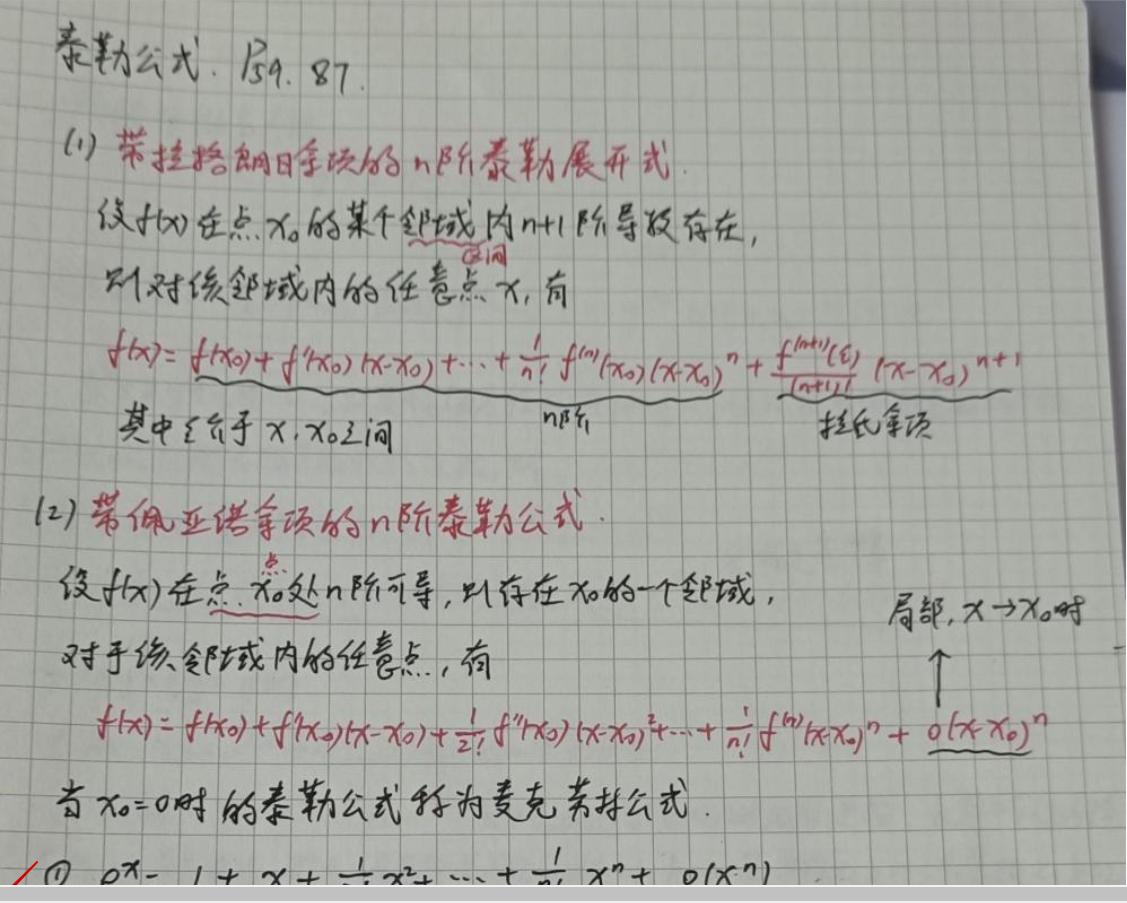 泰勒公式. P59. 87.
(1) 带拉格朗日余项的n阶泰勒展开式.
设f(x)在点x₀的某个邻域内n+1阶导数存在,
区间
则对该邻域内的任意点x,有
f(x)=f(x₀)+f'(x₀)(x-x₀)+…+1/n! f⁽ⁿ⁾(x₀)(x-x₀)ⁿ+f⁽ⁿ⁺¹⁾(ξ)/(n+1)! (x-x₀)ⁿ⁺¹
n阶 拉氏余项
其中ξ介于x,x₀之间
(2) 带佩亚诺余项的n阶泰勒公式.
点
设f(x)在点x₀处n阶可导,则存在x₀的一个邻域,
局部,x→x₀时
对于该邻域内的任意点,有
↑
f(x)=f(x₀)+f'(x₀)(x-x₀)+1/2! f''(x₀)(x-x₀)²+…+1/n! f⁽ⁿ⁾(x-x₀)ⁿ+o(x-x₀)ⁿ
当x₀=0时的泰勒公式称为麦克劳林公式.
① eˣ=1+x+1/2! x²+…+1/n! xⁿ+o(xⁿ)